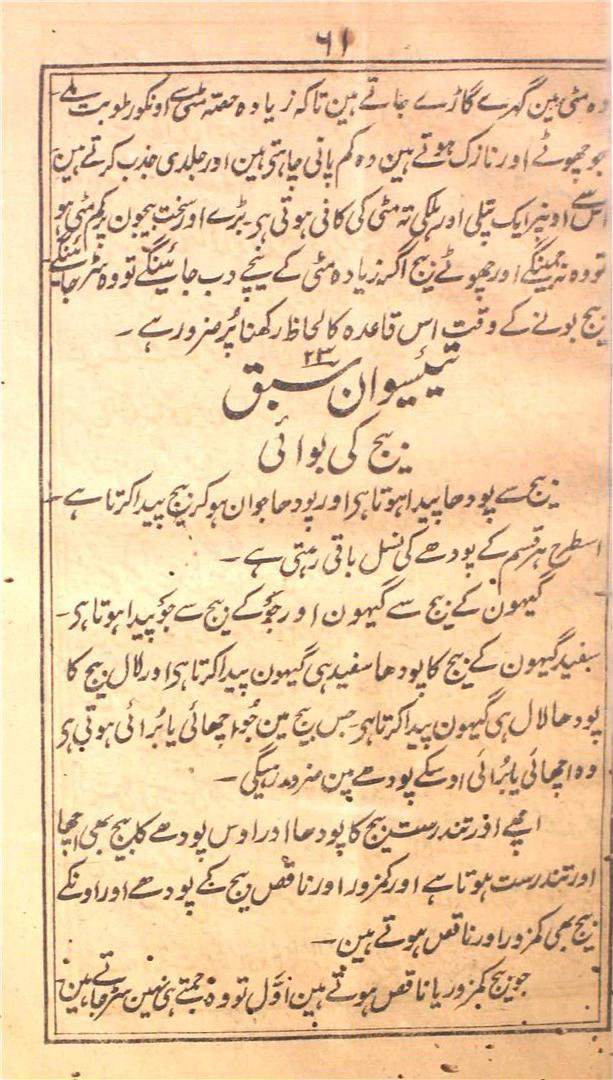 ۶۱
وہ مٹی مین گہرے گاڑے جاتے ہین تاکہ زیادہ حصّہ مٹی سے اونکو رطوبت ملے
جو چھوٹے اور نازک ہوتے ہین وہ کم پانی چاہتے ہین اور جلدی جذب کرتے ہین
اس سے اونپر ایک پتلی اور ہلکی تہ مٹی کی کافی ہوتی ہی۔ بڑے اور سخت بیجون پر کم مٹی ہو
تو وہ نہ جمینگے اور چھوٹے بیج اگر زیادہ مٹی کے نیچے دب جائینگے تو وہ سڑ جائینگے
بیج بونے کے وقت اس قاعدہ کا لحاظ رکھنا پُر ضرور ہے ۔
تیئیسوان سبق ۲۳
بیج کی بوائی
بیج سے پودھا پیدا ہوتا ہی اور پودھا جوان ہو کر بیج پیدا کرتا ہے ۔
اسطرح ہر قسم کے پودھے کی نسل باقی رہتی ہے ۔
گیہون کے بیج سے گیہون اور جَو کے بیج سے جَو پیدا ہوتا ہی۔
سفید گیہون کے بیج کا پودھا سفید ہی گیہون پیدا کرتا ہی اور لال بیج کا
پودھا لال ہی گیہون پیدا کرتا ہی۔ جس بیج مین جو اچھائی یا بُرائی ہوتی ہی
وہ اچھائی یا بُرائی اوسکے پودھے مین ضرور رہیگی ۔
اچھے اور تندرست بیج کا پودھا اور اوس پودھے کا بیج بھی اچھا
اور تندرست ہوتا ہے اور کمزور اور ناقص بیج کے پودھے اور اونکے
بیج بھی کمزور اور ناقص ہوتے ہین ۔
جو بیج کمزور یا ناقص ہوتے ہین اوّل تو وہ جمتے ہی نہین سڑ جاتے ہین